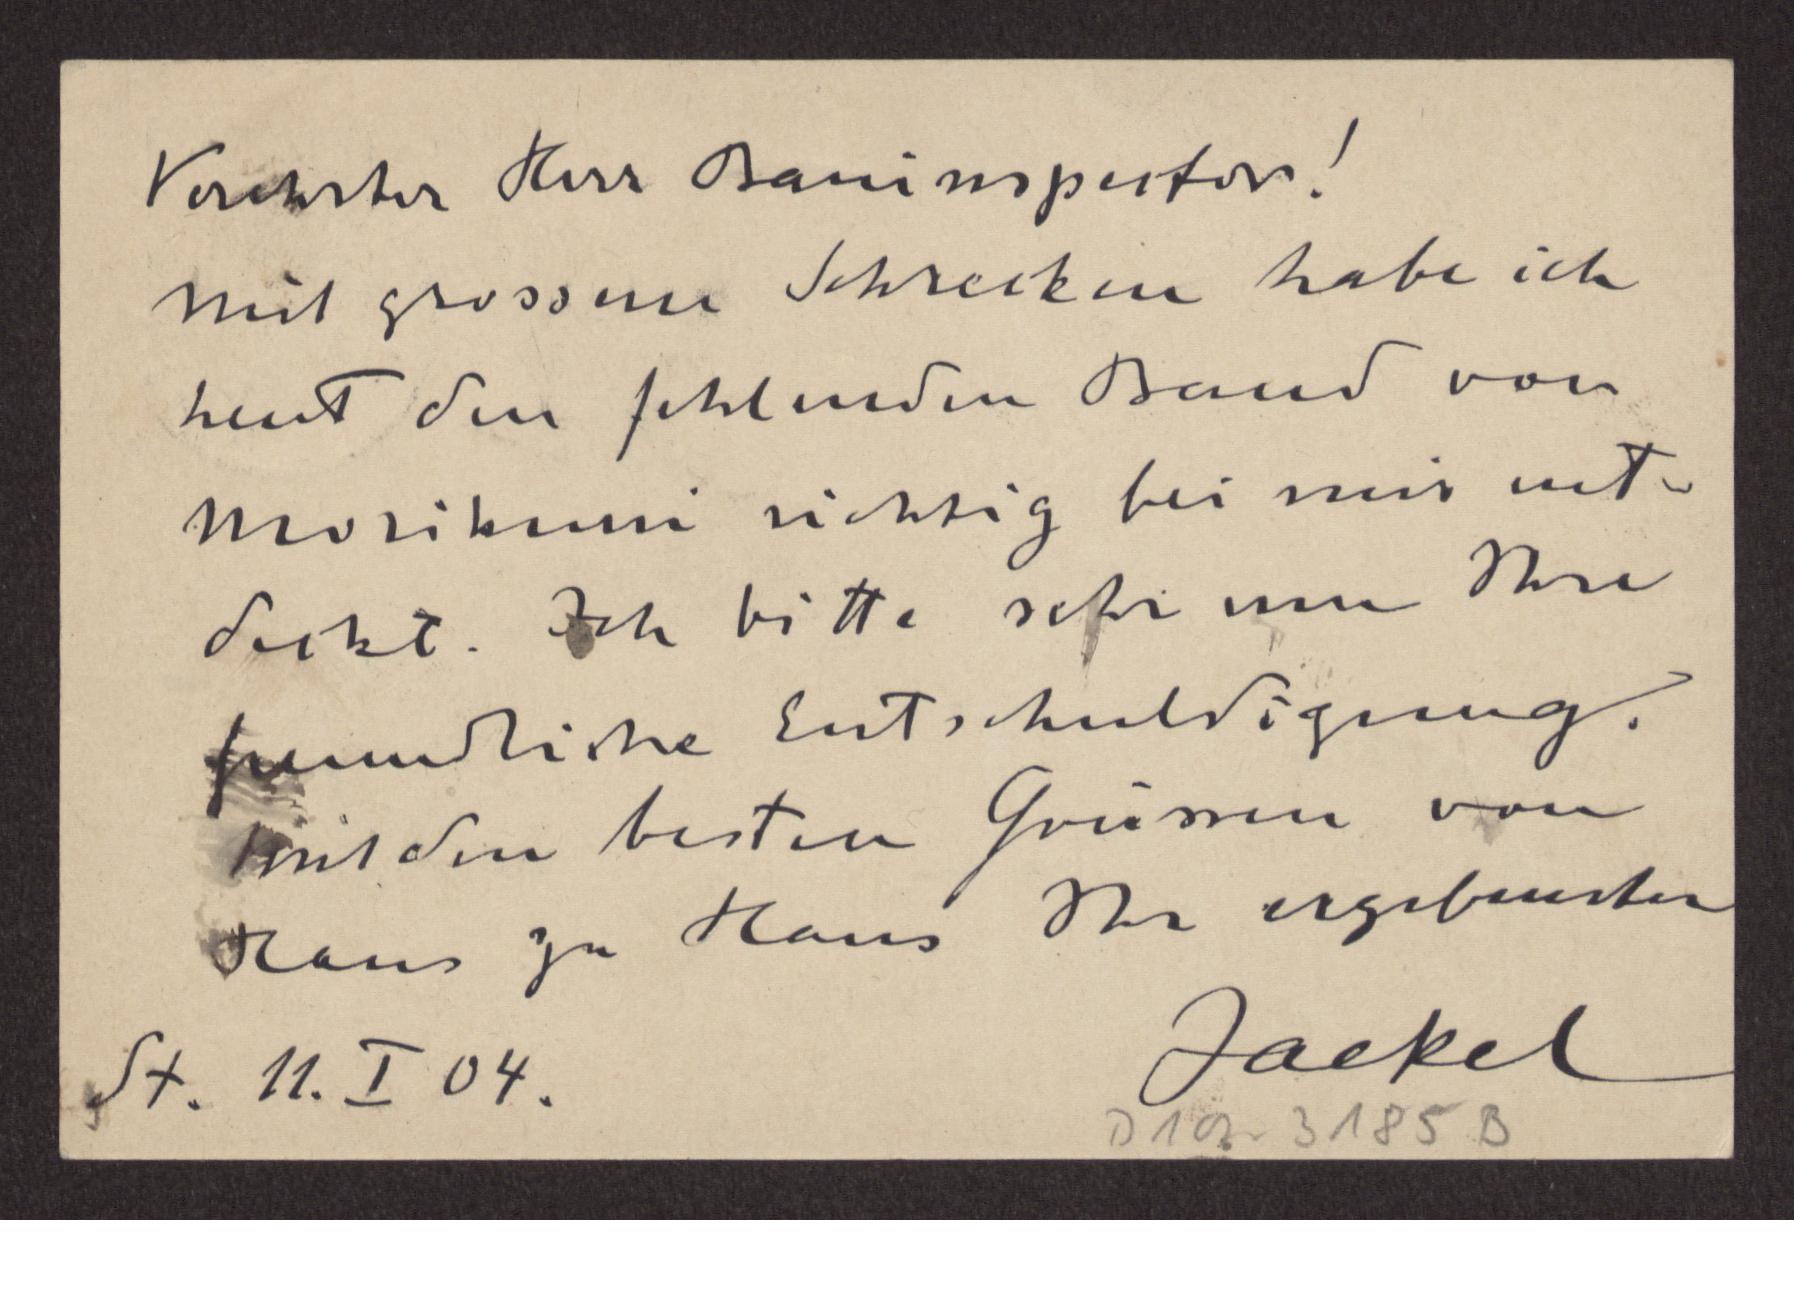 Verehrter Herr Bauinspector!
Mit grossem Schrecken habe ich
heut den fehlenden Band von
Morikuni richtig bei mir ent-
deckt. Ich bitte sehr um Ihre
freundliche Entschuldigung.
Mit den besten Grüssen von
Haus zu Haus Ihr ergebenster
Jaekel
St. 11. I 04.
3185 B